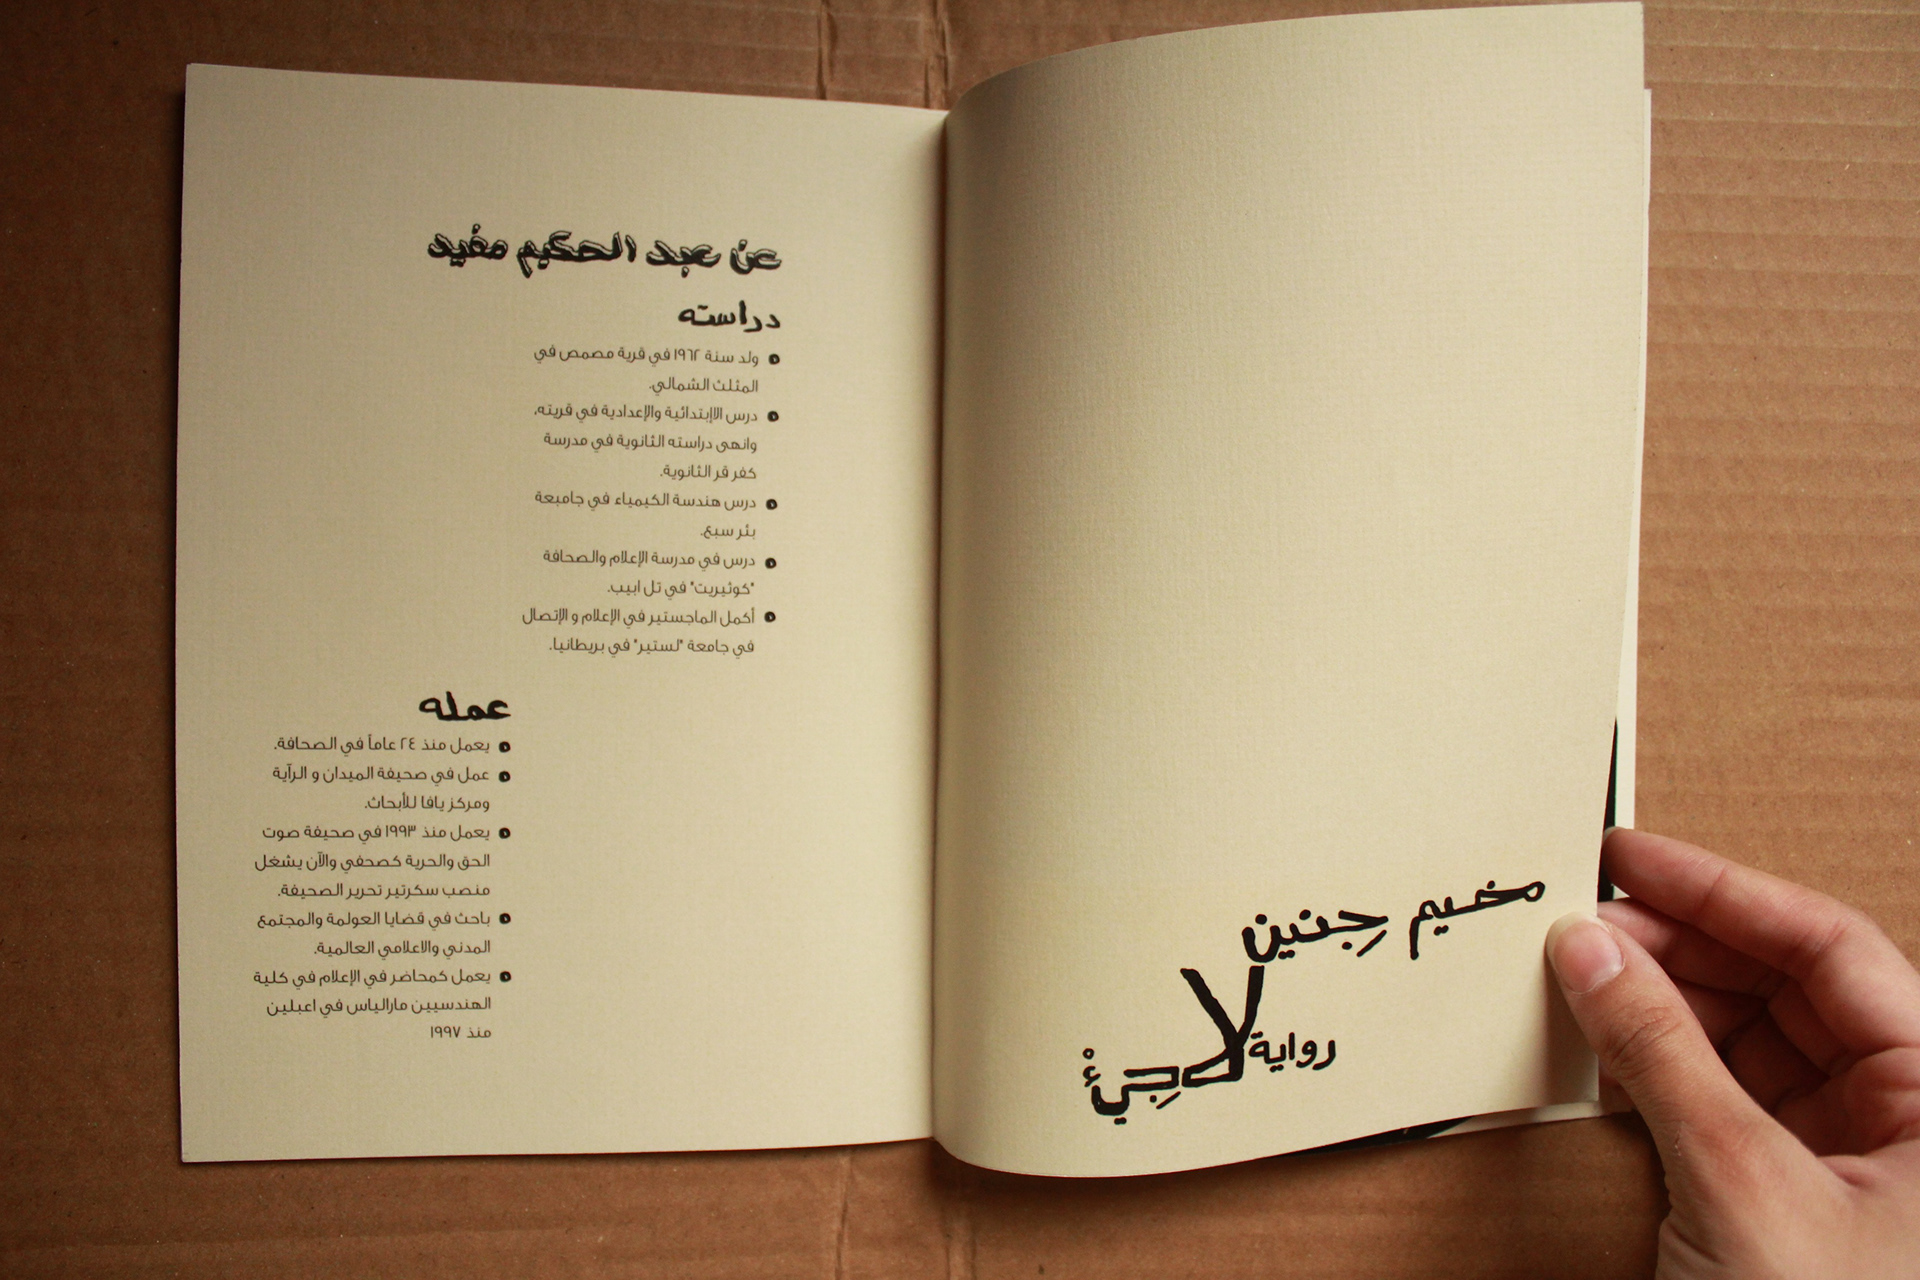 عن عبد الحكيم مفيد
دراسته
ولد سنة ١٩٦٢ في قرية مصمص في
المثلث الشمالي.
درس الإبتدائية والإعدادية في قريته،
وانهى دراسته الثانوية في مدرسة
كفر قر الثانوية.
درس هندسة الكيمياء في جامبعة
بئر سبع.
درس في مدرسة الإعلام والصحافة
"كوتيريت" في تل ابيب.
أكمل الماجستير في الإعلام و الإتصال
في جامعة "لستير" في بريطانيا.
عمله
يعمل منذ ٢٤ عاماً في الصحافة.
عمل في صحيفة الميدان و الرآية
ومركز يافا للأبحاث.
يعمل منذ ١٩٩٣ في صحيفة صوت
الحق والحرية كصحفي والآن يشغل
منصب سكرتير تحرير الصحيفة.
باحث في قضايا العولمة والمجتمع
المدني والاعلامي العالمية.
يعمل كمحاضر في الإعلام في كلية
الهندسيين مارالياس في اعبلين
منذ ١٩٩٧
مخيم جِنين
رواية
لاجِئْ